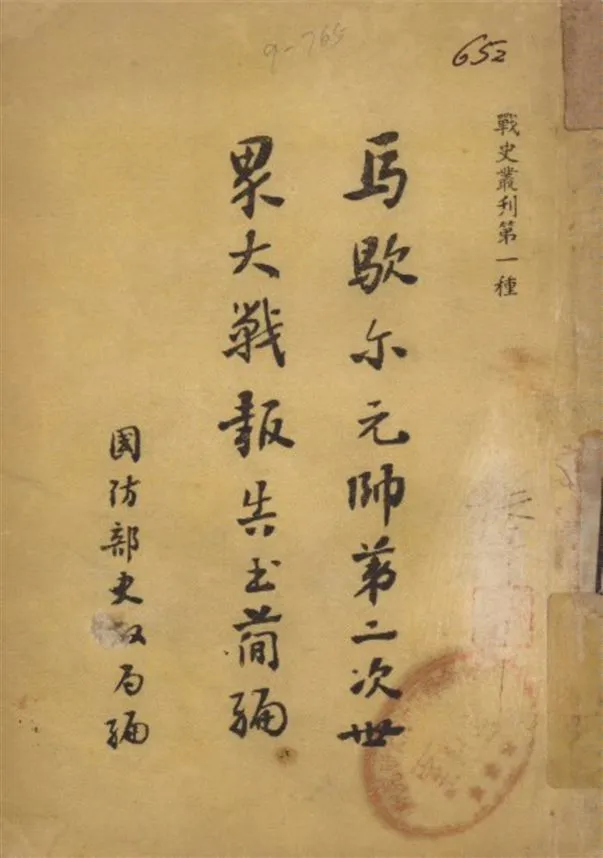 9-765
652
戰史叢刊第一種
馬歇尔元帥第二次世
界大戰報告书简编
國防部史政局编